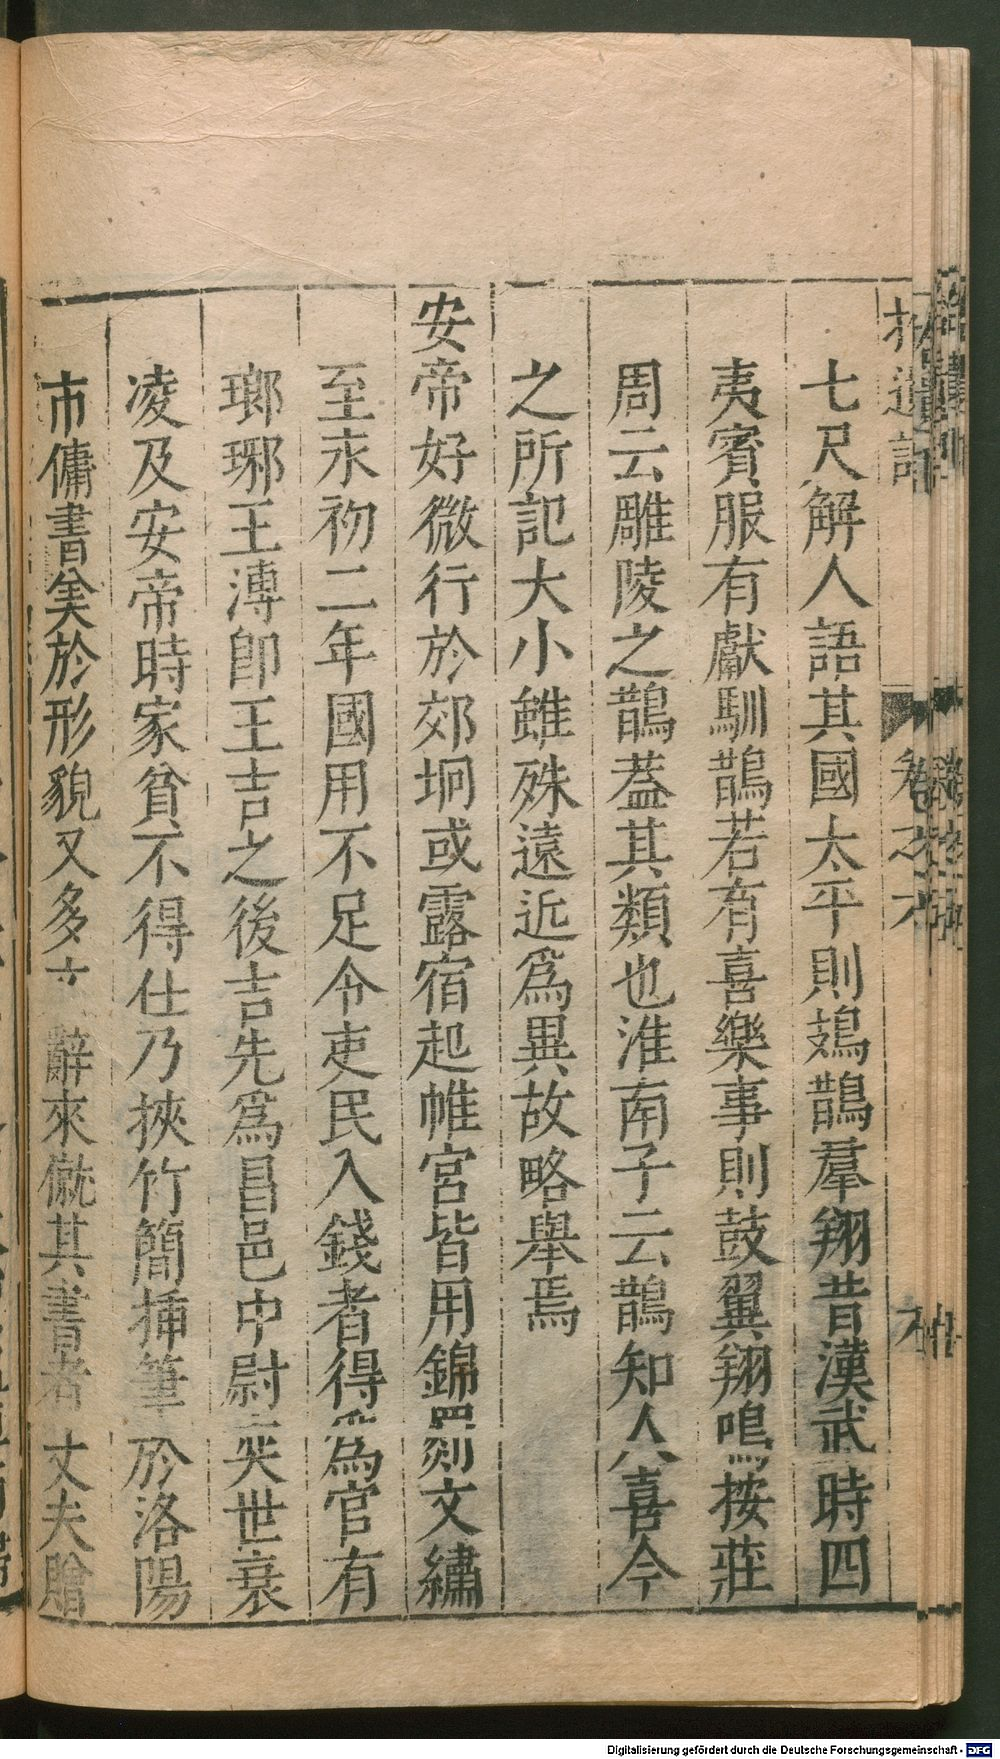 七尺解人語其國太平則鴆鵲羣翔昔漢武時四
夷賓服有獻馴鵲若有喜樂事則鼓翼翔鳴按莊
周云雕陵之鵲葢其類也淮南子云鵲知人喜今
之所記大小雖殊遠近爲異故略舉焉
安帝好微行於郊坰或露宿起帷宮皆用錦罽文繡
至永初二年國用不足令吏民入錢者得爲官有
瑯琊王溥卽王吉之後吉先爲昌邑中尉奕世衰
凌及安帝時家貧不得仕乃挾竹簡揷筆於洛陽
市傭書美於形貌又多文辭來僦其書者丈夫贈
拾遺記
卷之六
Digitalisierung gefördert durch die Deutsche Forschungsgemeinschaft - DFG